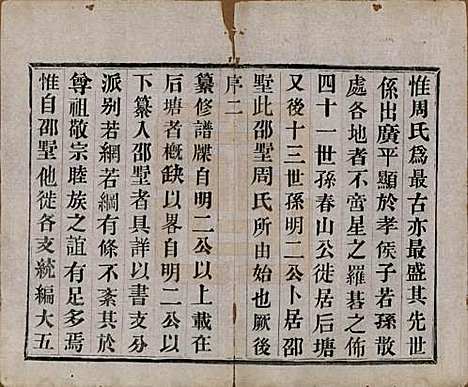 惟周氏爲最古亦最盛其先世
係出廣平顯於孝侯子若孫散
處各地者不啻星之羅碁之佈
四十一世孫春山公徙居后塘
又後十三世孫明二公卜居邵
墅此邵墅周氏所由始也厥後
序二
纂修譜牒自明二公以上載在
后塘者槪缺以畧自明二公以
下纂入邵墅者具詳以書支分
派别若網若綱有條不紊其於
尊祖敬宗睦族之誼有足多焉
惟自邵墅他徙各支統編大五